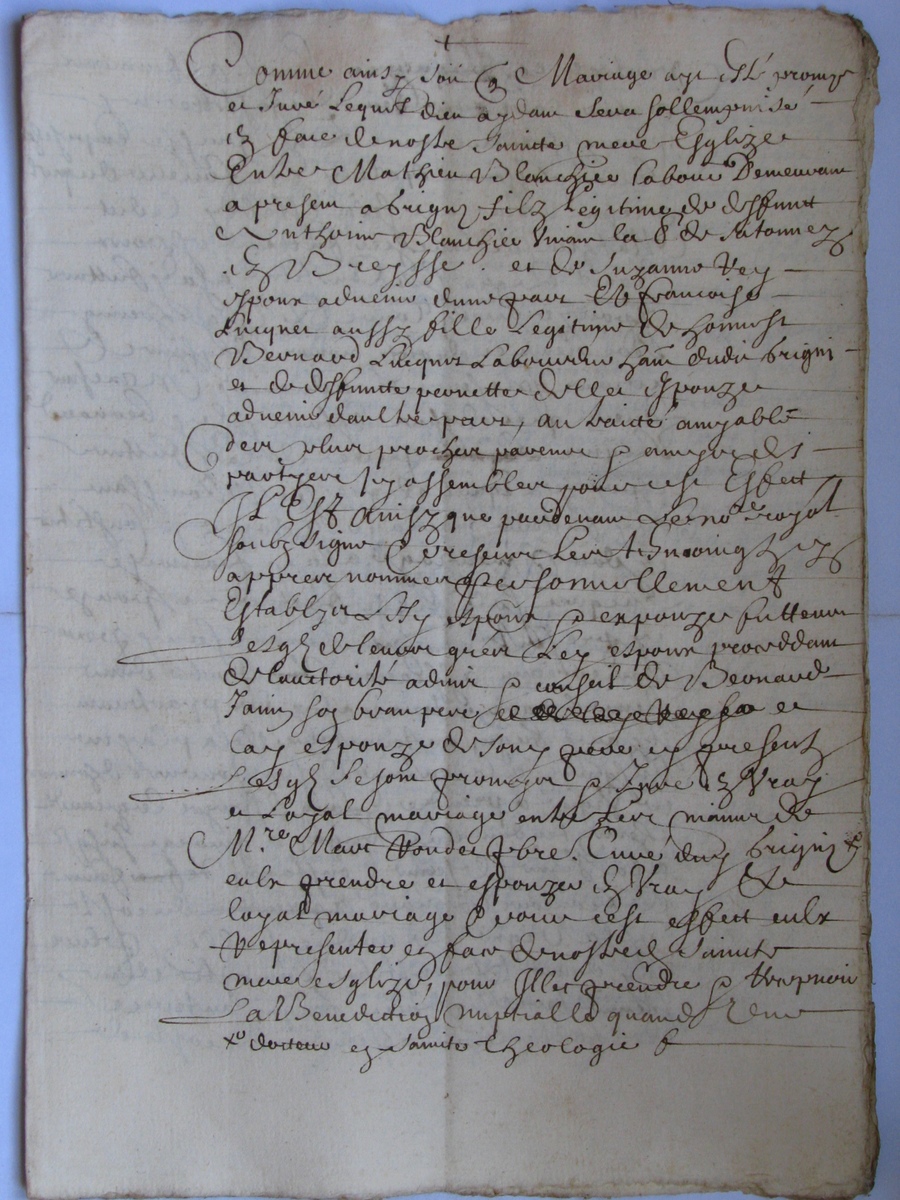 Comme ainsy soit q Mariage aye esté promys
et Juré Lequel dieu aydant sera sollempnisé
en face de nostre saincte mere Esglize
Entre Mathieu Blanchier labour Demeurant
a present a brigny filz Legitime de deffunct
Anthoine Blanchier Vivant la de Satonnez
en Breysse. et de Suzanne Rey
espoux advenir dune part Et francoise
Lucquet aussy fille Legitime de honnest
Bernard Lucquet Laboureur hant dudit brigni
et de deffuncte pernette espouze
advenir daultre part, au traicté amyable
des plus procher parens & amys des
partyes assembler pour cest Effect
IL Est Ainsy que pardevant Le no.re royal
soubz signe & presens Les tesmoingtz
appres nommes Personnellement
Establys espoux & espouze futteurs
de leurs grés Ley espoux proceddant
de lauctorité advis & conseil de Bernard
Janin son beau pere et
lay espouze de sond pere icy present
Lesql se sont promys & Juré en Vray
et Loyal mariage entre Les mains de
M.re Marc Pbre. Curé dud brigny x
eulx prendre et espouzer en Vray &
loyal mariage & pour cest effect eulx
Representer en face de nostred saincte
mere esglize, pour Illec prendre & Recepvoir
La Benediction nuptialle quand Lune
x docteur en saincte theologie